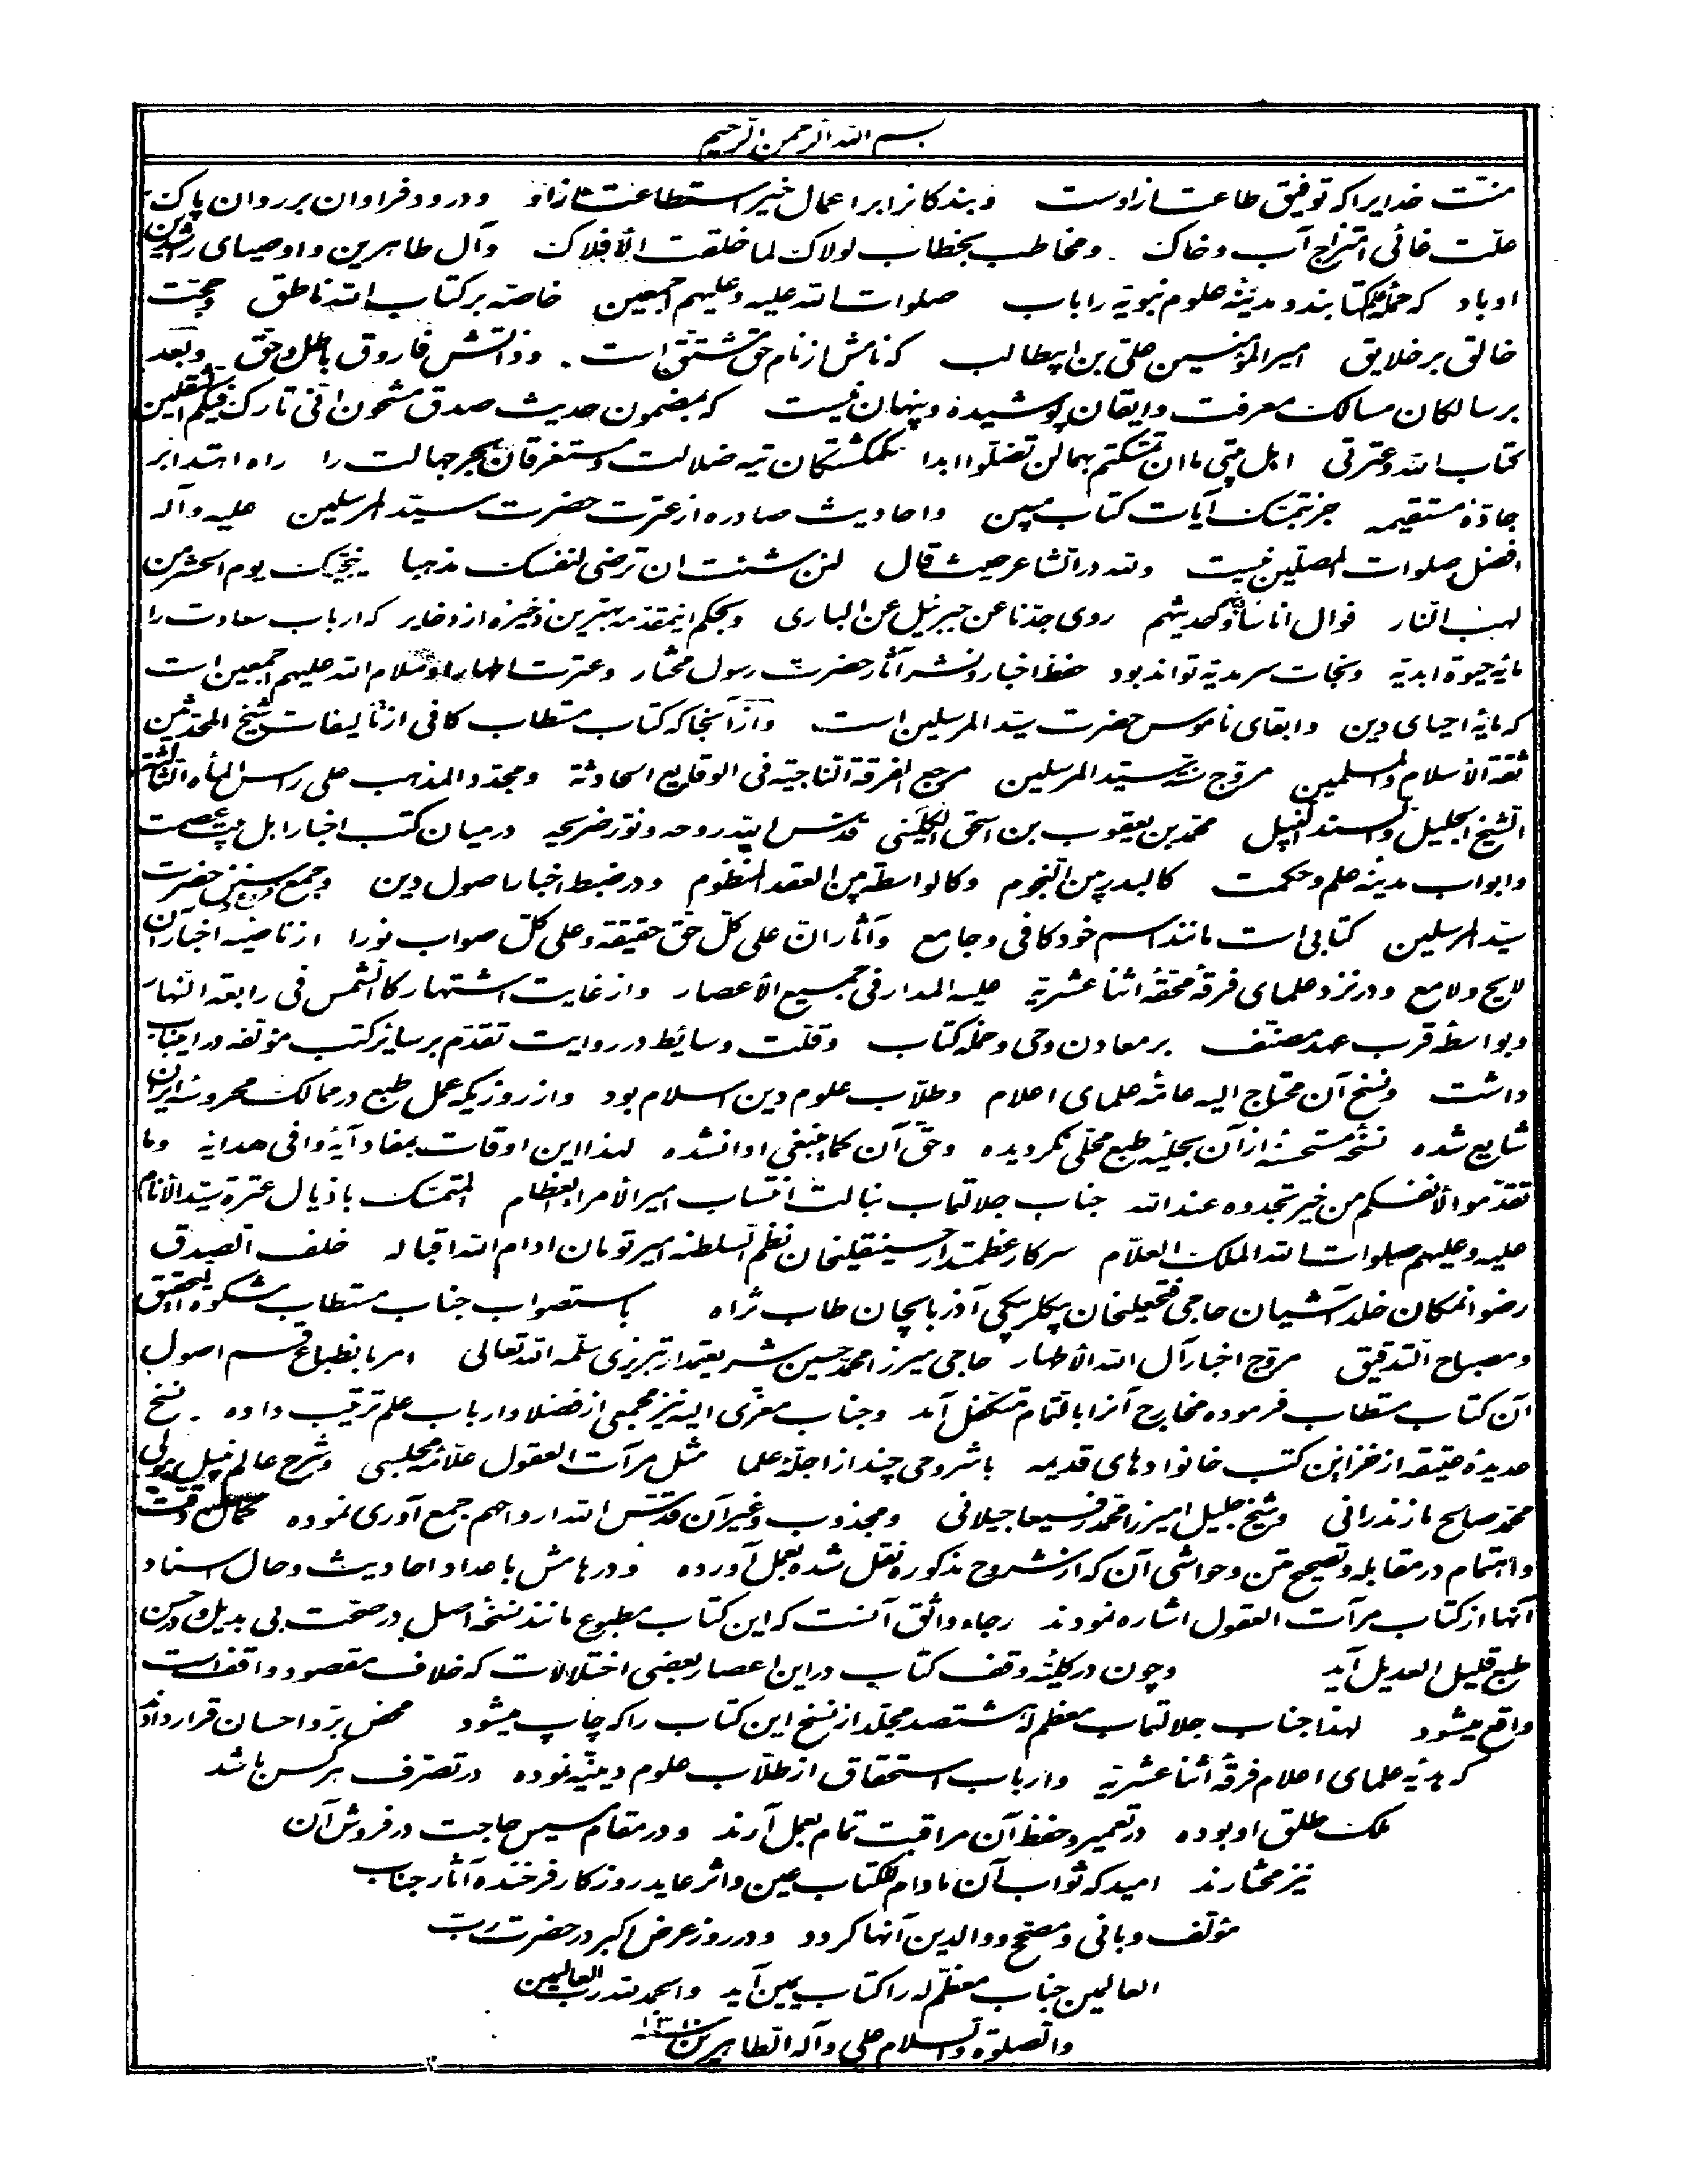 بسم الله الرحمن الرحیم
منت خدایرا که توفیق طاعت از اوست و بندگانرا بر اعمال خیر استطاعت از او و درود فراوان بر روان پاک
علت غائی امتزاج آب و خاک و مخاطب بخطاب لولاک لما خلقت الأفلاک و آل طاهرین و اوصیای راشدین
او باد که حملهٔ کتابند و مدینهٔ علوم نبویه را باب صلوات الله علیه و علیهم اجمعین خاصه بر کتاب الله ناطق و حجت
خالق بر خلایق امیر المؤمنین علی بن ابیطالب که نامش از نام حق مشتق است و ذاتش فاروق باطل و حق و بعد
بر سالکان مسالک معرفت و ایقان پوشیده و پنهان نیست که بمضمون حدیث صدق مشحون انی تارک فیکم الثقلین
کتاب الله و عترتی اهل بیتی ما ان تمسکتم بهما لن تضلوا ابدا گمگشتگان تیه ضلالت و مستغرقان بحر جهالت را راه اهتدا بر
جادهٔ مستقیمه جز بتمسک آیات کتاب مبین و احادیث صادره از عترت حضرت سید المرسلین علیه و آله
افضل صلوات المصلین نیست و لله در الشاعر حیث قال لئن شئت ان ترضی لنفسک مذهبا ینجیک یوم الحشر من
لهب النار فوال اناسا و حدیثهم روی جدنا عن جبرئیل عن الباری و بحکم اینمقدمه بهترین ذخیره از ذخایر که ارباب سعادت را
مایه حیوة ابدیه و نجات سرمدیه تواند بود حفظ اخبار و نشر آثار حضرت رسول مختار و عترت اطهار او سلام الله علیهم اجمعین است
که مایهٔ احیای دین و ابقای ناموس حضرت سید المرسلین است و از آنجا که کتاب مستطاب کافی از تألیفات شیخ المحدثین
ثقة الأسلام و المسلمین مروج سنة سید المرسلین مرجع الفرقة الناجیه فی الوقایع الحادثة و مجدد المذهب علی راس المأة الثالثة
الشیخ الجلیل و السند النبیل محمد بن یعقوب بن اسحق الکلینی قدس الله روحه و نور ضریحه در میان کتب اخبار اهل بیت عصمت
و ابواب مدینهٔ علم و حکمت کالبدر من النجوم و کالواسطة من العقد المنظوم و در ضبط اخبار اصول دین و جمع سنن حضرت
سید المرسلین کتابی است مانند اسم خود کافی و جامع و آثار ان علی کل حق حقیقه و علی کل صواب نورا از ناصیه اخبار آن
لایح و لامع و در نزد علمای فرقهٔ محقهٔ اثنا عشریه علیه المدار فی جمیع الأعصار و از غایت اشتهار کالشمس فی رابعة النهار
و بواسطهٔ قرب عهد مصنف بر معادن وحی و حملهٔ کتاب و قلت وسایط در روایت تقدم بر سایر کتب مؤلفه در اینباب
داشت و نسخ آن محتاج الیه عامهٔ علمای اعلام و طلاب علوم دین اسلام بود و از روزیکه عمل طبع در ممالک محروسهٔ ایران
شایع شده نسخهٔ مستحسنه از آن بحلیهٔ طبع محلی نگردیده و حق آن کما ینبغی ادا نشده لهذا این اوقات بمفاد آیهٔ وافی هدایه و ما
تقدموا لأنفسکم من خیر تجدوه عند الله جناب جلالتمآب نبالت انتساب امیر الأمراء العظام المتمسک باذیال عترة سید الأنام
علیه و علیهم صلوات الله الملک العلام سرکار عظمتمدار حسینقلیخان نظم السلطنه امیر تومان ادام الله اقباله خلف الصدق
رضوانمکان خلد آشیان حاجی فتحعلیخان بیگلربیگی آذربایجان طاب ثراه باستصواب جناب مستطاب مشکوة التحقیق
و مصباح التدقیق مروج اخبار آل الله الأطهار حاجی میرزا محمد حسین شریعتمدار تبریزی سلمه الله تعالی امر بانطباع قسم اصول
آن کتاب مستطاب فرموده مخارج آنرا بالتمام متکفل آمد و جناب معزی الیه نیز مجمعی از فضلا و ارباب علم ترتیب داده نسخ
عدیدهٔ عتیقه از خزاین کتب خانوادهای قدیمه با شروحی چند از اجلهٔ علما مثل مرآت العقول علامهٔ مجلسی و شرح عالم نبیل مولی
محمد صالح مازندرانی و شیخ جلیل امیرزا محمد رفیعا جیلانی و مجذوب و غیر آن قدس الله ارواحهم جمع آوری نموده کمال دقت
و اهتمام در مقابله و تصحیح متن و حواشی آن که از شروح مذکوره نقل شده بعمل آورده و در هامش باعداد احادیث و حال اسناد
آنها از کتاب مرآت العقول اشاره نمودند رجاء واثق آنست که این کتاب مطبوع مانند نسخهٔ اصل در صحت بی بدیل و در حسن
طبع قلیل العدیل آید و چون در کلیهٔ وقف کتاب در این اعصار بعضی اختلالات که خلاف مقصود واقف است
واقع میشود لهذا جناب جلالتمآب معظم له ششصد مجلد از نسخ این کتاب را که چاپ میشود محض بر و احسان قرار داد
که هدیهٔ علمای اعلام فرقهٔ اثنا عشریه و ارباب استحقاق از طلاب علوم دینیه نموده در تصرف هر کس باشد
ملک طلق او بوده در تعمیر و حفظ آن مراقبت تمام بعمل آرند و در مقام مسیس حاجت در فروش آن
نیز مختارند امید که ثواب آن مادام للکتاب عین و اثر عاید روزگار فرخنده آثار جناب
مؤلف و بانی و مصحح و والدین آنها گردد و در روز عرض اکبر در حضرت رب
العالمین جناب معظم له را کتاب یمین آید و الحمد لله رب العالمین
و الصلوة و السلام علی و آله الطاهرین